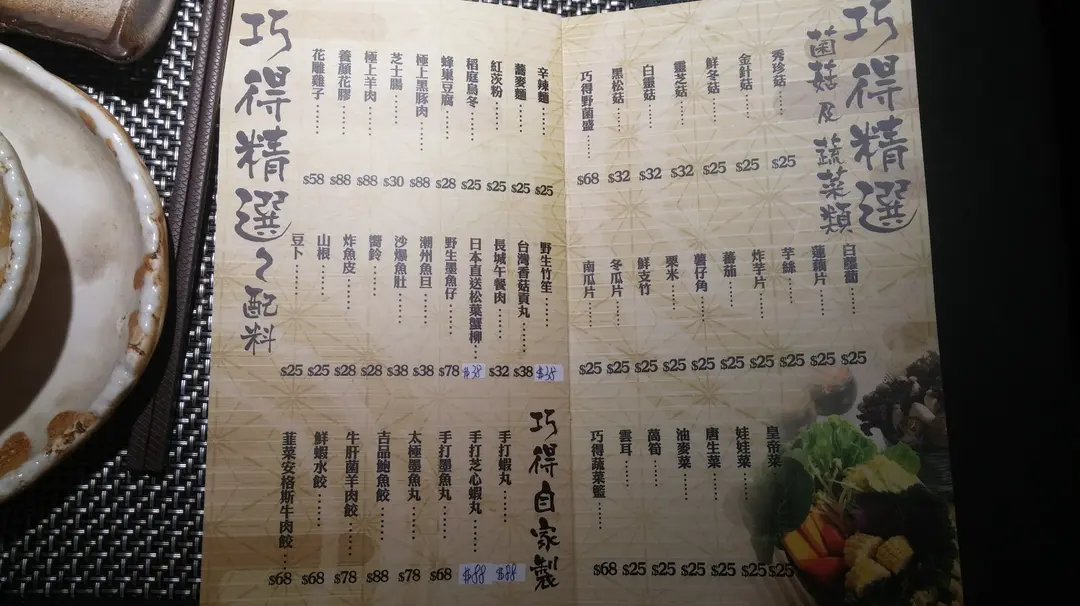 巧得精選
菌菇及蔬菜類
秀珍菇...... $25
金針菇...... $25
鮮冬菇...... $25
靈芝菇...... $32
白靈菇...... $32
黑松菇...... $32
巧得野菌盛...... $68
白蘿蔔...... $25
蓮藕片...... $25
芋絲...... $25
炸芋片...... $25
蕃茄...... $25
薯仔角...... $25
粟米...... $25
鮮支竹...... $25
冬瓜片...... $25
南瓜片...... $25
皇帝菜...... $25
娃娃菜...... $25
唐生菜...... $25
油麥菜...... $25
萵筍...... $25
雲耳...... $25
巧得蔬菜籃...... $68
辛辣麵...... $25
蕎麥麵...... $25
紅茨粉...... $25
稻庭烏冬...... $25
蜂巢豆腐...... $28
極上黑豚肉...... $88
芝士腸...... $30
極上羊肉...... $88
養顏花膠...... $88
花雕雞子...... $58
巧得精選之配料
野生竹笙...... $38
台灣香菇貢丸...... $38
長城午餐肉...... $32
日本直送松葉蟹柳... $38
野生墨魚仔...... $78
潮州魚旦...... $38
沙爆魚肚...... $38
響鈴...... $28
炸魚皮...... $28
山根...... $25
豆卜...... $25
巧得自家製
手打蝦丸...... $88
手打芝心蝦丸...... $88
手打墨魚丸...... $68
太極墨魚丸...... $78
吉品鮑魚餃...... $88
牛肝菌羊肉餃...... $78
鮮蝦水餃...... $68
韮菜安格斯牛肉餃... $68